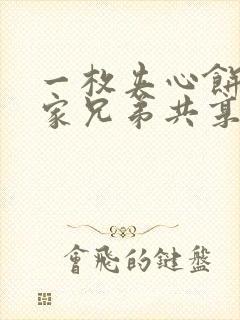 一枚夹心餅
家兄弟共
會飛的鍵盤